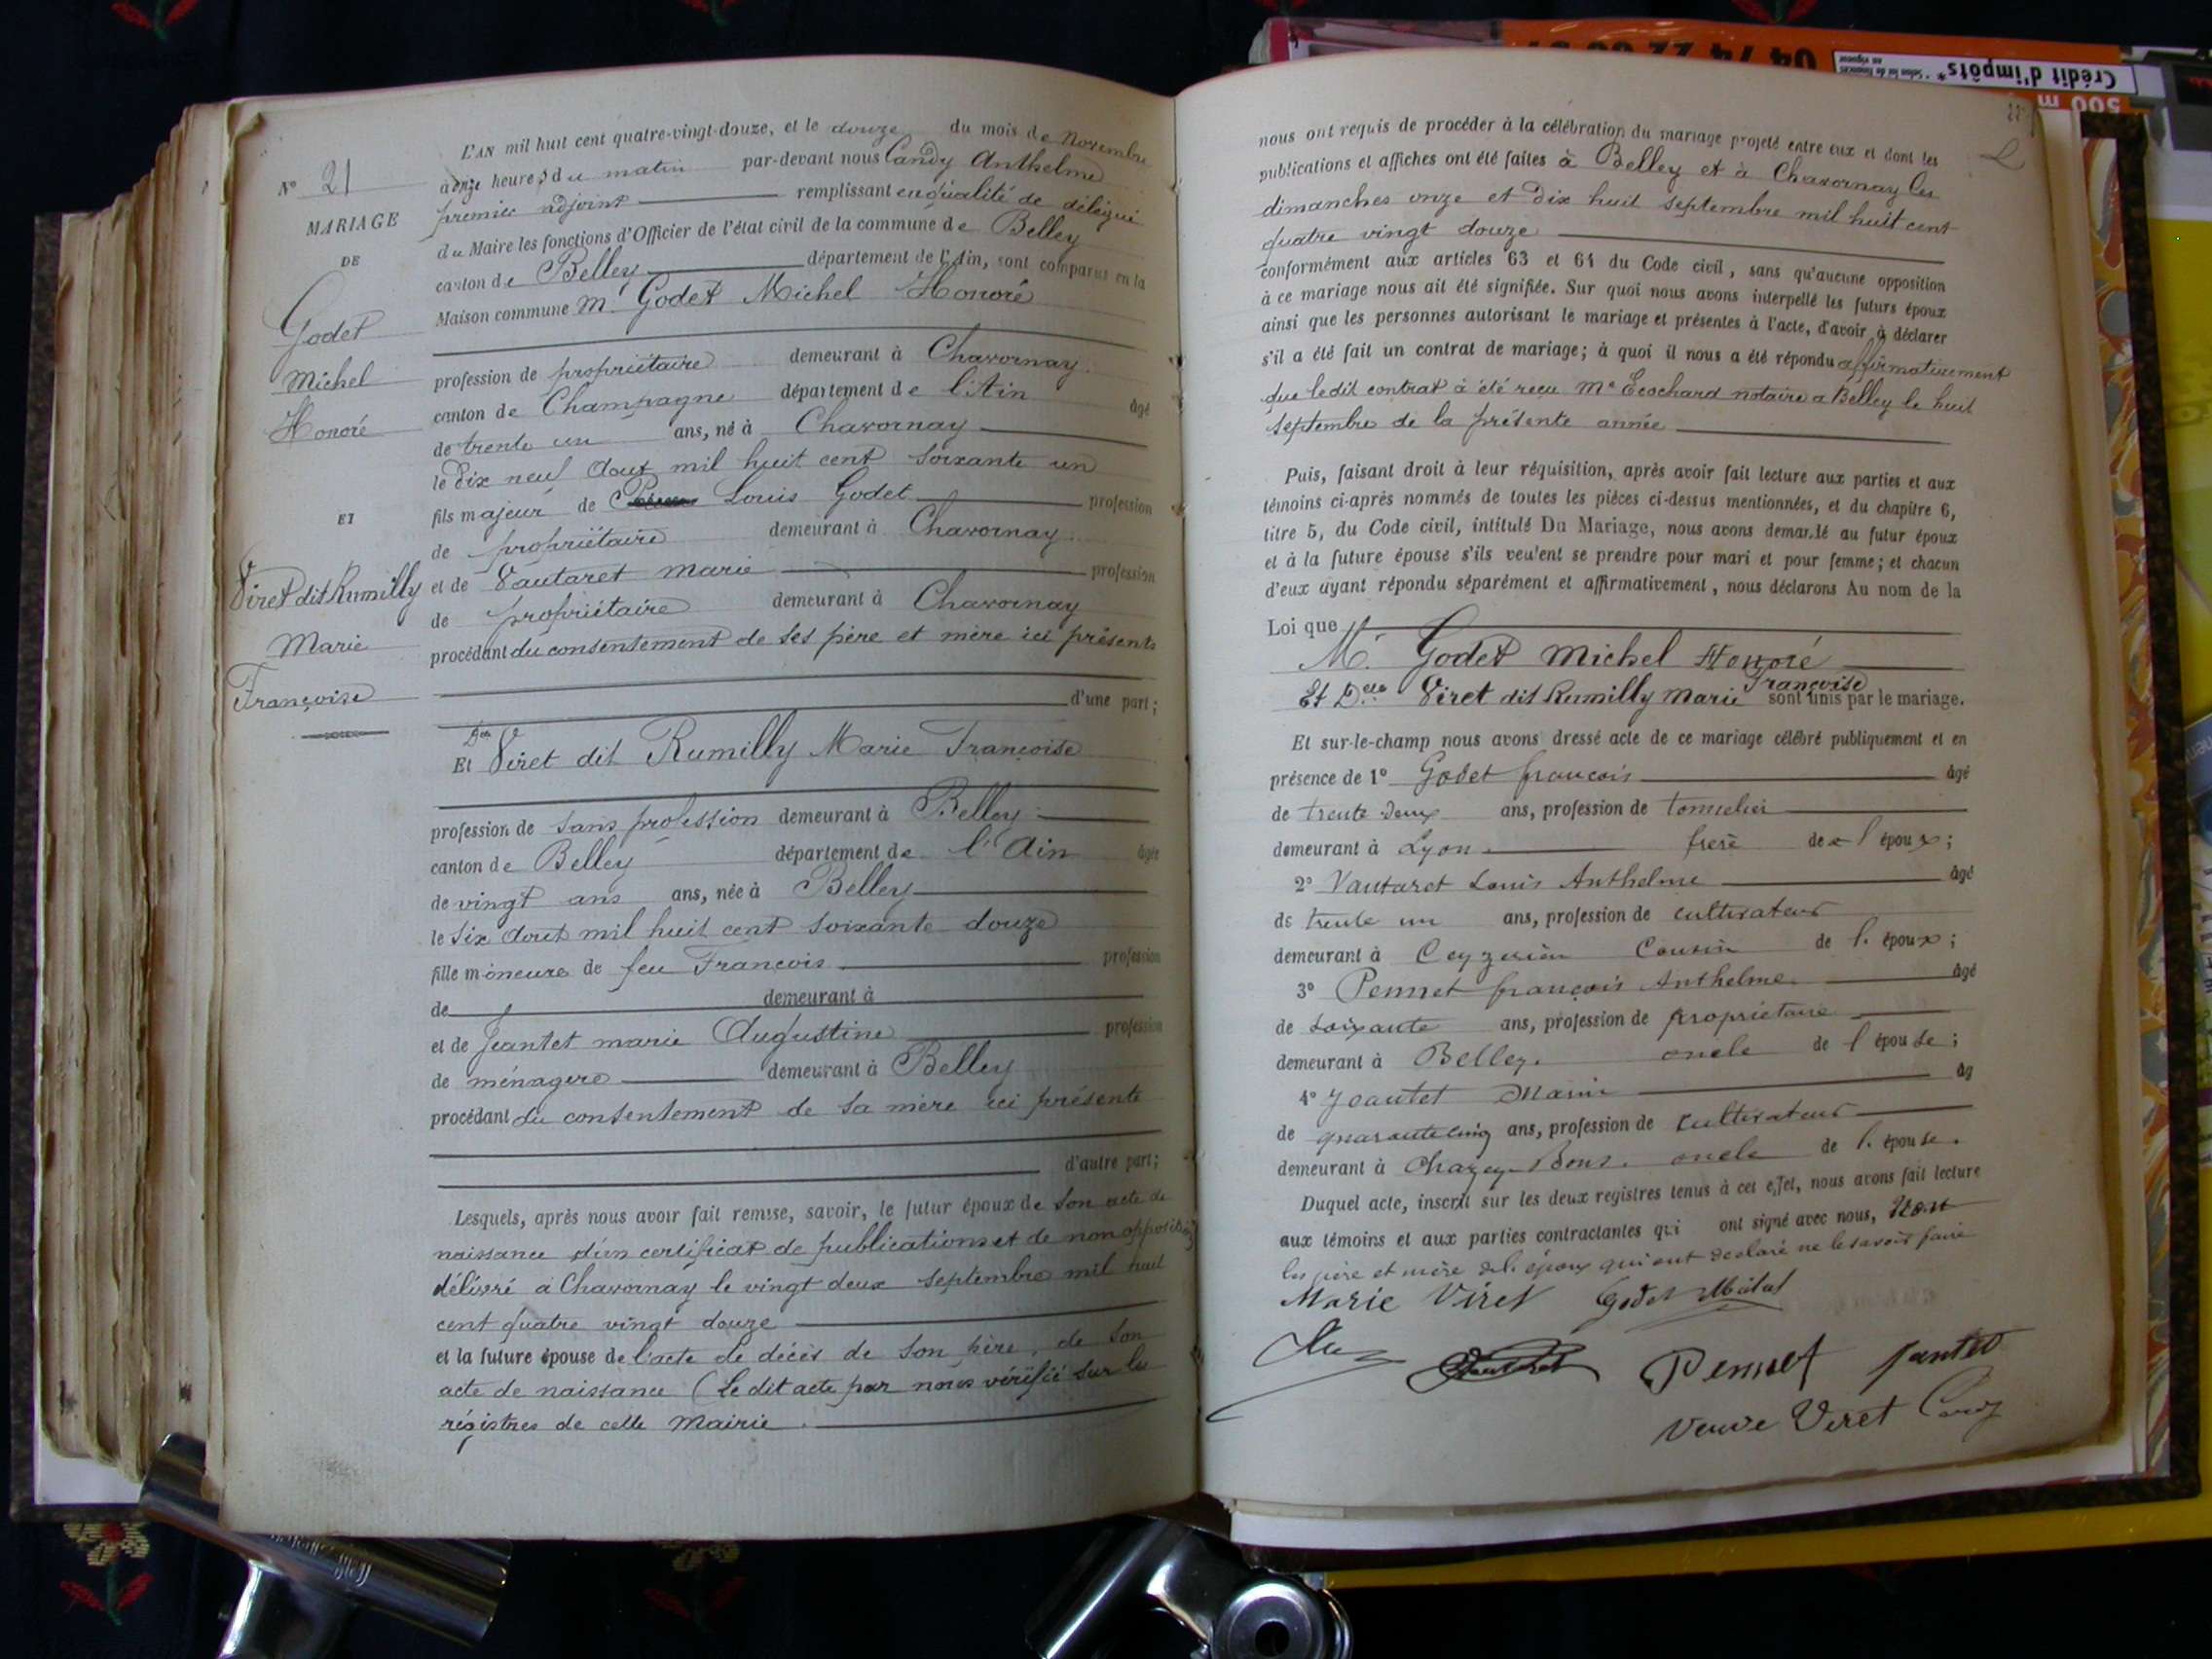 N° 21
MARIAGE
DE
Godet
Michel
Honoré
ET
Viret dit Rumilly
Marie
Françoise
L'AN mil huit cent quatre-vingt-douze, et le douze du mois de Novembre
à onze heures du matin par-devant nous Candy Anthelme
premier adjoint remplissant en qualité de délégué
du Maire les fonctions d'Officier de l'état civil de la commune de Belley
canton de Belley département de l'Ain, sont comparus en la
Maison commune Mr Godet Michel Honoré
profession de propriétaire demeurant à Chavornay
canton de Champagne département de l'Ain âgé
de trente un ans, né à Chavornay
le dix neuf Aout mil huit cent soixante un
fils majeur de Louis Godet profession
de propriétaire demeurant à Chavornay
et de Vautaret marie profession
de propriétaire demeurant à Chavornay
procédant du consentement de ses père et mère ici présents
d'une part;
Et Dlle Viret dit Rumilly Marie Françoise
profession de sans profession demeurant à Belley
canton de Belley département de l'Ain âgée
de vingt ans ans, née à Belley
le six Aout mil huit cent soixante douze
fille mineure de feu François profession
de demeurant à
et de Jeantet marie Augustine profession
de ménagere demeurant à Belley
procédant du consentement de sa mère ici présente
d'autre part;
Lesquels, après nous avoir fait remise, savoir, le futur époux de son acte de
naissance d'un certificat de publications et de non opposition
délivré à Chavornay le vingt deux septembre mil huit
cent quatre vingt douze
et la future épouse de l'acte de décès de son père, de son
acte de naissance (Le dit acte par nous vérifié sur les
régistres de cette Mairie.
nous ont requis de procéder à la célébration du mariage projeté entre eux et dont les
publications et affiches ont été faites à Belley et à Chavornay les
dimanches onze et dix huit septembre mil huit cent
quatre vingt douze
conformément aux articles 63 et 64 du Code civil, sans qu'aucune opposition
à ce mariage nous ait été signifiée. Sur quoi nous avons interpellé les futurs époux
ainsi que les personnes autorisant le mariage et présentes à l'acte, d'avoir à déclarer
s'il a été fait un contrat de mariage; à quoi il nous a été répondu affirmativement
que ledit contrat à été reçu Me Ecochard notaire a Belley le huit
septembre de la présente année
Puis, faisant droit à leur réquisition, après avoir fait lecture aux parties et aux
témoins ci-après nommés de toutes les pièces ci-dessus mentionnées, et du chapitre 6,
titre 5, du Code civil, intitulé Du Mariage, nous avons demandé au futur époux
et à la future épouse s'ils veulent se prendre pour mari et pour femme; et chacun
d'eux ayant répondu séparément et affirmativement, nous déclarons Au nom de la
Loi que
Mr Godet Michel Honoré
Et Dlle Viret dit Rumilly Marie Françoise sont unis par le mariage.
Et sur-le-champ nous avons dressé acte de ce mariage célébré publiquement et en
présence de 1° Godet françois âgé
de trente deux ans, profession de tonnelier
demeurant à Lyon frere de l'époux;
2° Vautaret Louis Anthelme âgé
de trente un ans, profession de cultivateur
demeurant à Ceyzerieu Cousin de l'époux;
3° Pennet françois Anthelme âgé
de soixante ans, profession de propriétaire
demeurant à Belley. oncle de l'épouse;
4° Jeantet Marin âg
de quarante cinq ans, profession de cultivateur
demeurant à Chazey-Bons. oncle de l'épouse.
Duquel acte, inscrit sur les deux registres tenus à cet effet, nous avons fait lecture
aux témoins et aux parties contractantes qui ont signé avec nous, Non
les père et mère de l'époux qui ont declaré ne le savoir faire
Marie Viret Godet Michel
Pennet Jantet
Veuve Viret Candy
Crédit d'impôts*
500 m